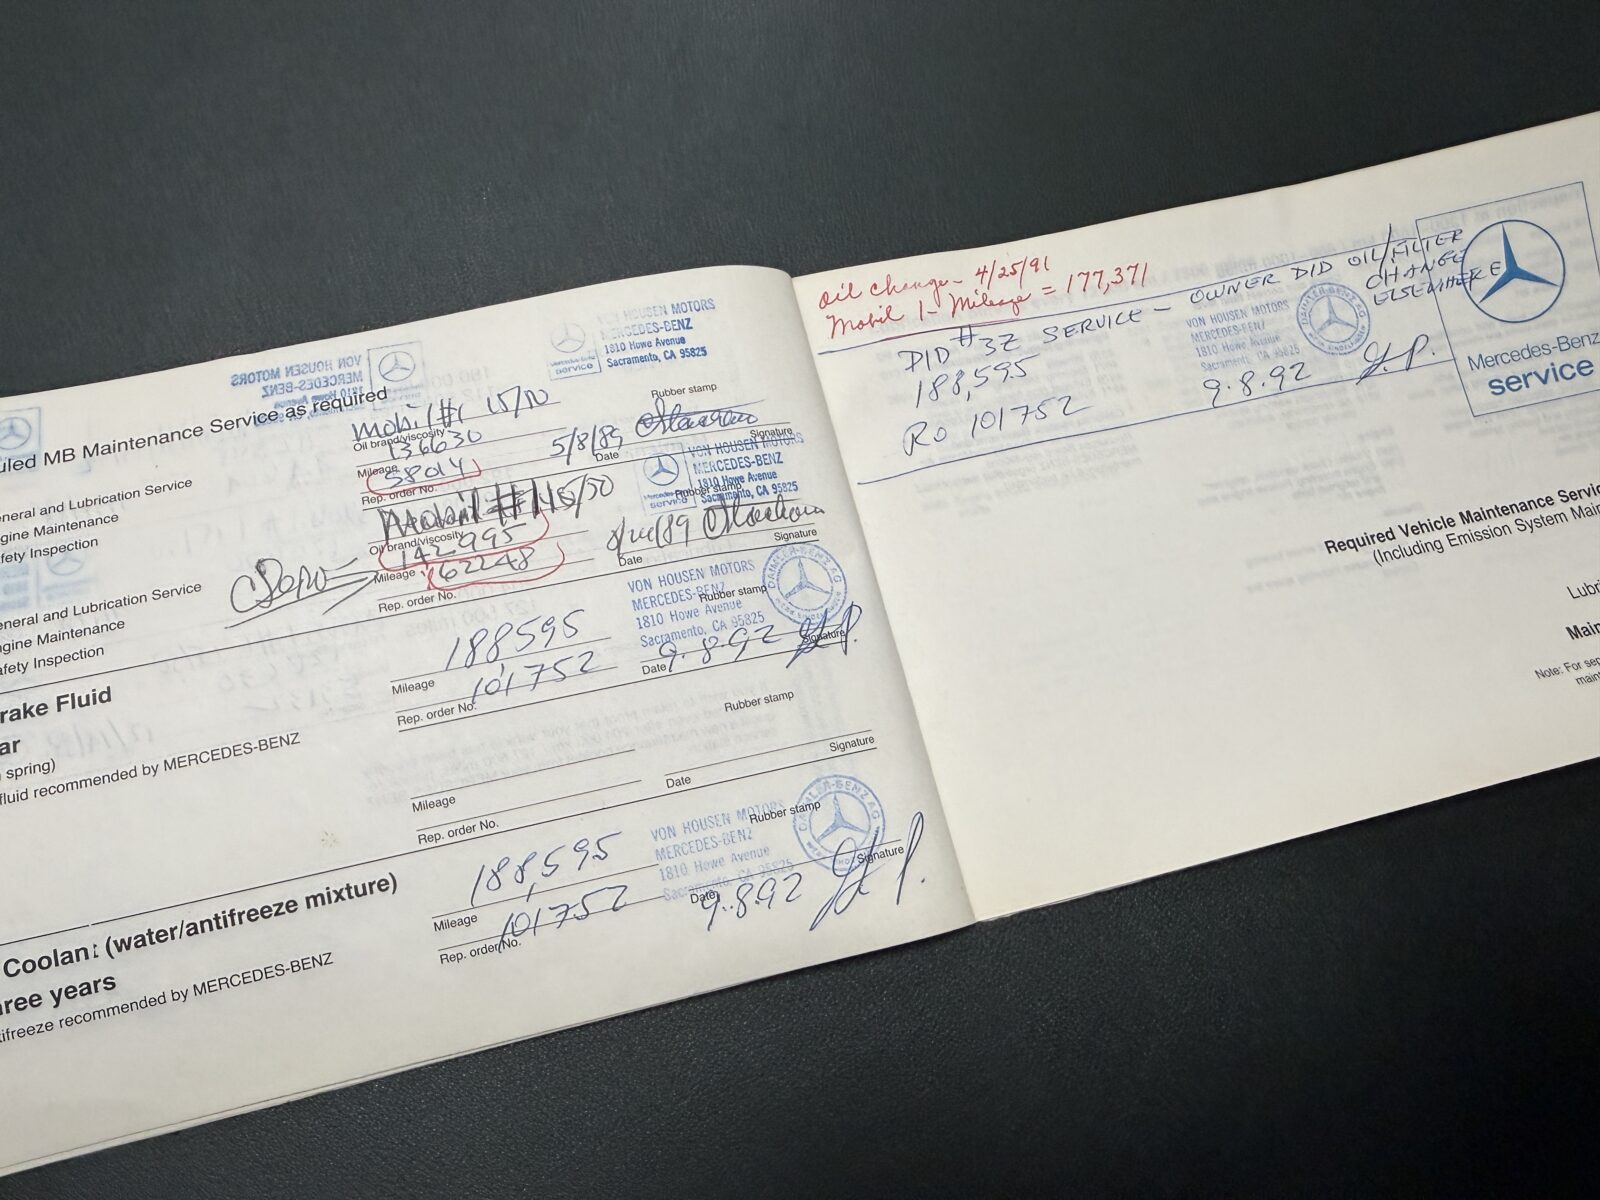 VON HOUSEN MOTORS
MERCEDES-BENZ
1810 Howe Avenue
Sacramento, CA 95825
service
Rubber stamp
uled MB Maintenance Service as required
Mobil #1 15/50
Oil brand/viscosity
136630
Mileage
58014
Rep. order No.
5/8/89
Date
Signature
eneral and Lubrication Service
ngine Maintenance
afety Inspection
VON HOUSEN MOTORS
MERCEDES-BENZ
1810 Howe Avenue
Sacramento, CA 95825
Mercedes-Benz
service
Rubber stamp
Mobil #1 15/50
Oil brand/viscosity
142995
Mileage
62248
Rep. order No.
Date
Signature
eneral and Lubrication Service
ngine Maintenance
afety Inspection
VON HOUSEN MOTORS
MERCEDES-BENZ
1810 Howe Avenue
Sacramento, CA 95825
DAIMLER-BENZ AG
Rubber stamp
rake Fluid
ar
spring)
fluid recommended by MERCEDES-BENZ
188595
Mileage
101752
Rep. order No.
9.8.92
Date
Signature
Rubber stamp
Mileage
Rep. order No.
Date
Signature
VON HOUSEN MOTORS
MERCEDES-BENZ
1810 Howe Avenue
Sacramento, CA 95825
DAIMLER-BENZ AG
Rubber stamp
Coolant (water/antifreeze mixture)
hree years
tifreeze recommended by MERCEDES-BENZ
188,595
Mileage
101752
Rep. order No.
9.8.92
Date
Signature
oil change - 4/25/91
Mobil 1 - Mileage = 177,371
DID #3Z SERVICE - OWNER DID OIL/FILTER
CHANGE
ELSEWHERE
188,595
RO 101752
VON HOUSEN MOTORS
MERCEDES-BENZ
1810 Howe Avenue
Sacramento, CA 95825
DAIMLER-BENZ AG
9.8.92
Mercedes-Benz
service
Required Vehicle Maintenance Servic
(Including Emission System Main
Lubri
Main
Note: For sep
maint